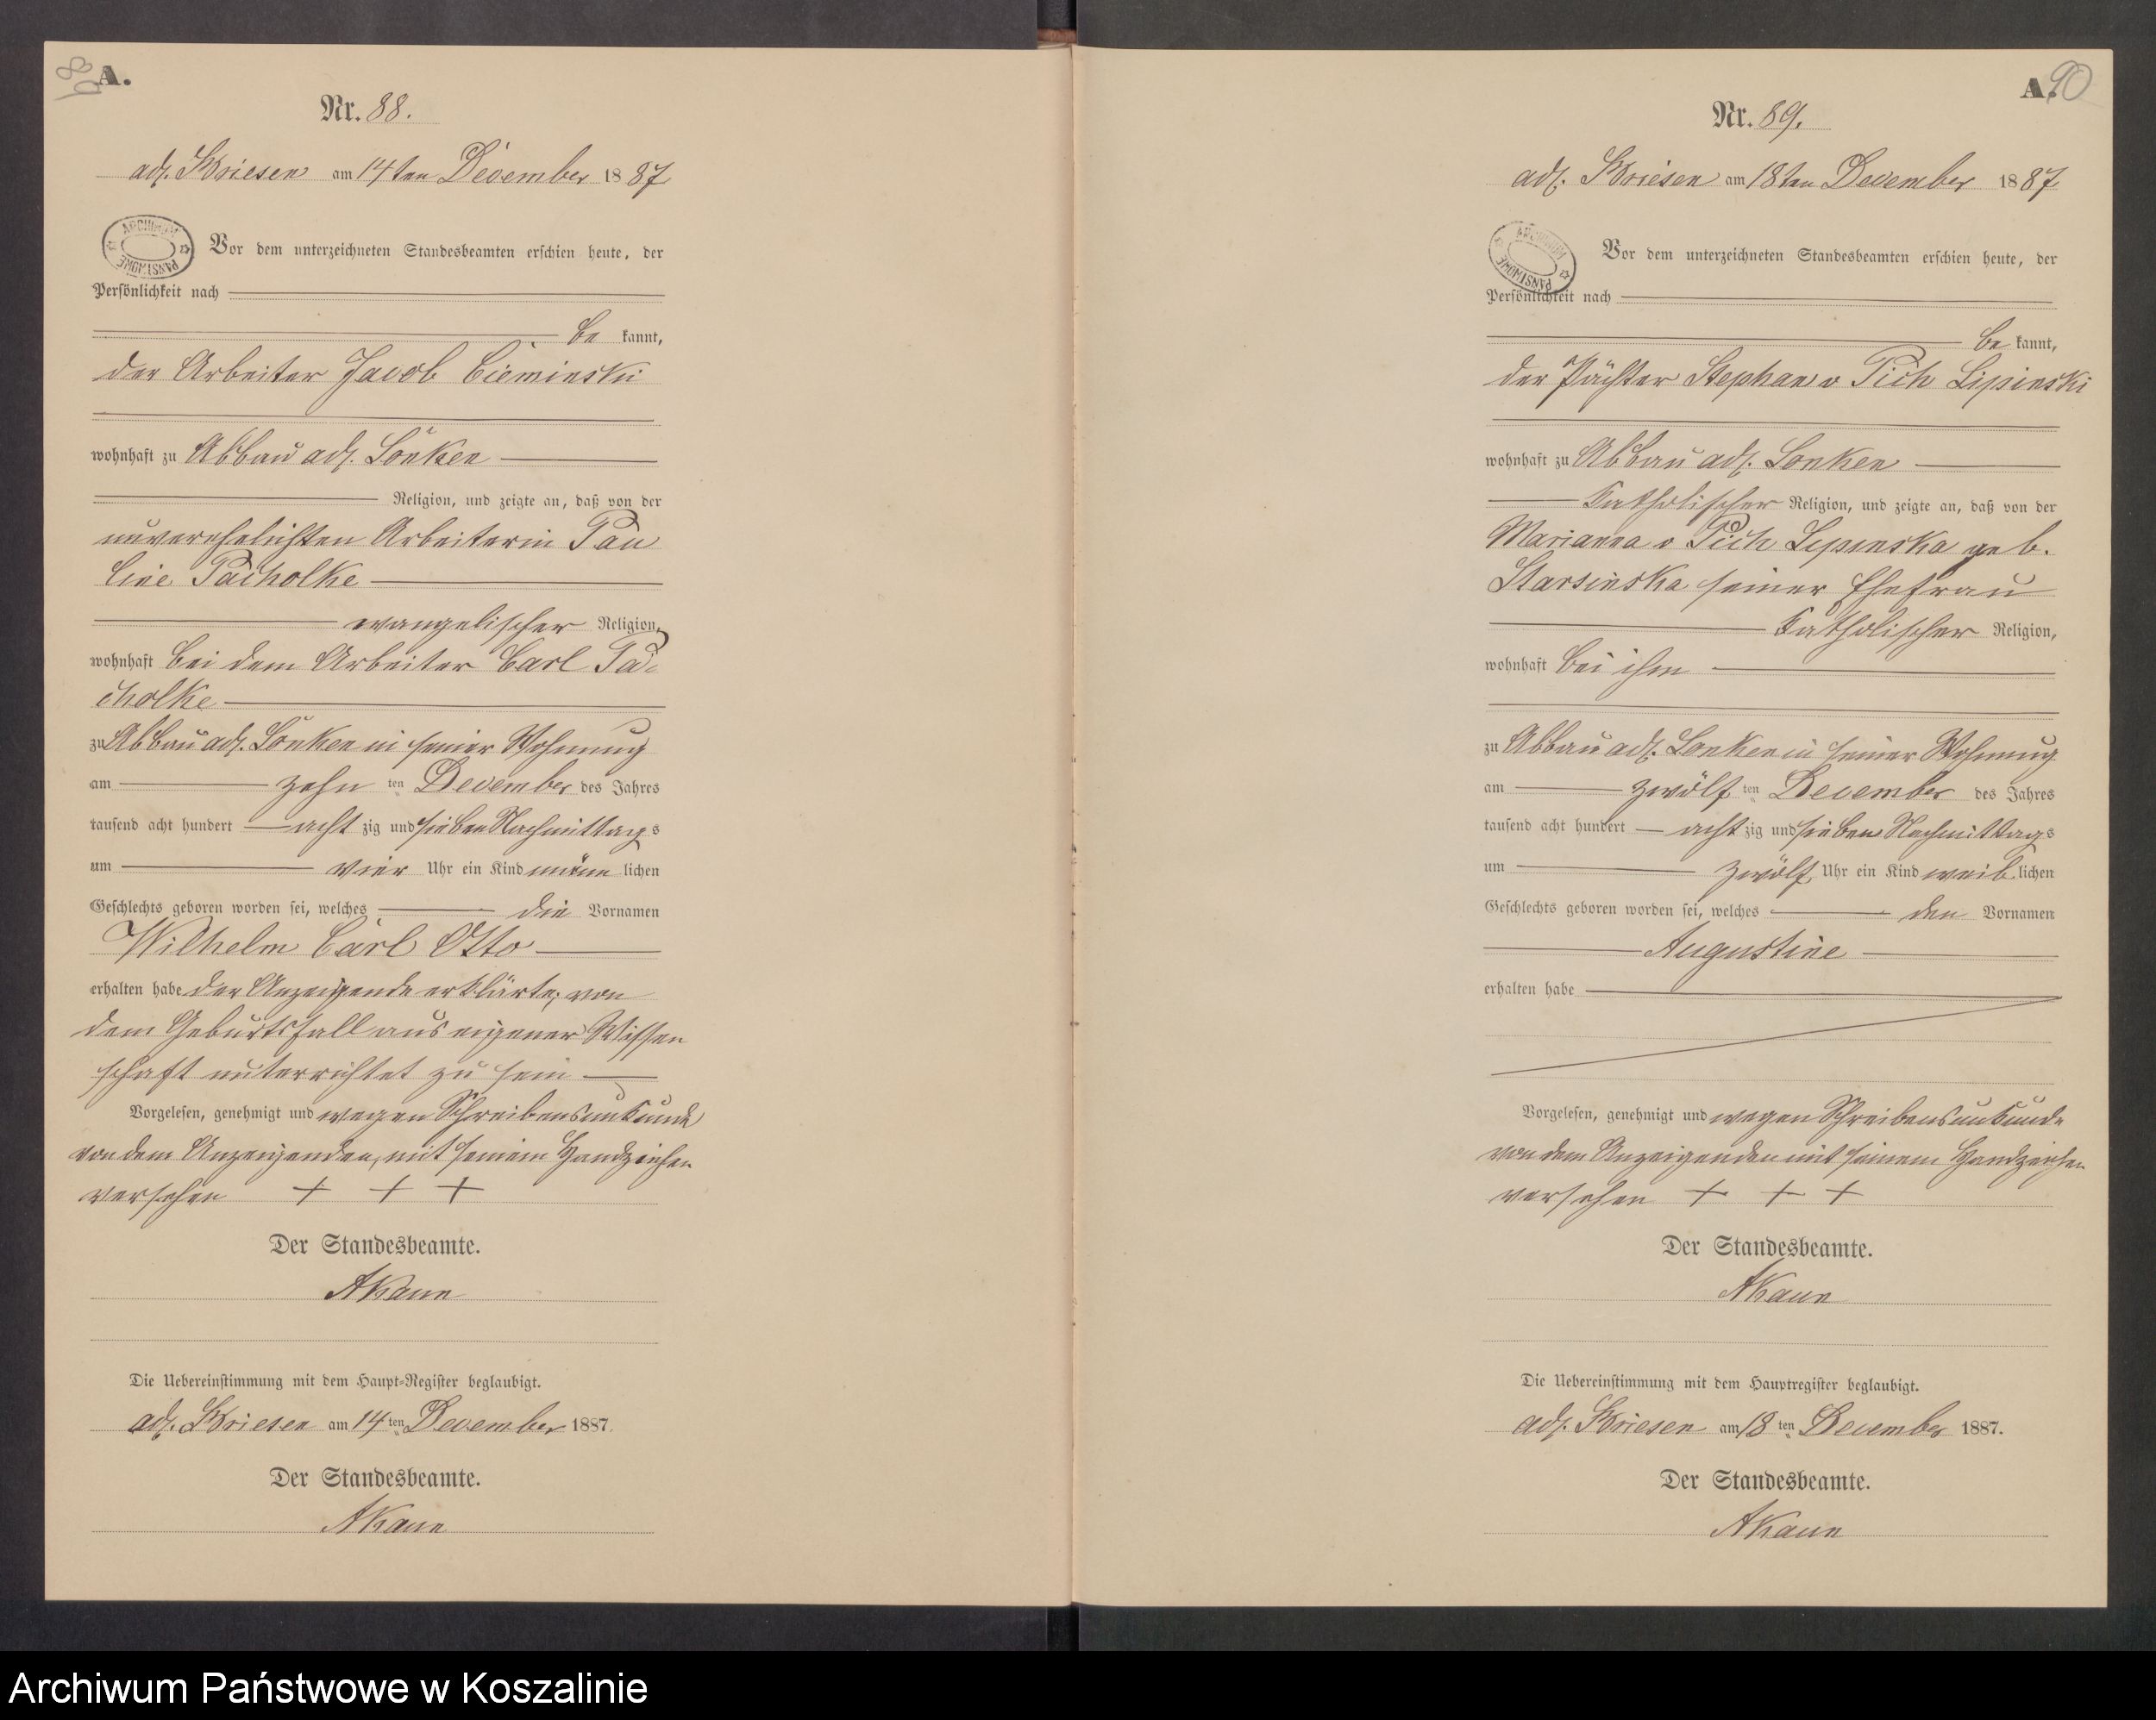 89
A.
Nr. 88.
adl. Briesen am 14ten December 1887
ARCHIWUM PAŃSTWOWE
Vor dem unterzeichneten Standesbeamten erschien heute, der
Persönlichkeit nach
be kannt,
der Arbeiter Jacob Cieminski
wohnhaft zu Abbau adl. Lonken
Religion, und zeigte an, daß von der
unverehelichten Arbeiterin Pau
line Pacholke
evangelischer Religion,
wohnhaft bei dem Arbeiter Carl Pa-
cholke
zu Abbau adl. Lonken in seiner Wohnung
am zehn ten December des Jahres
tausend acht hundert acht zig und sieben Nachmittags
um vier Uhr ein Kind männ lichen
Geschlechts geboren worden sei, welches die Vornamen
Wilhelm Carl Otto
erhalten habe der Anzeigende erklärte, von
dem Geburtsfall aus eigener Wissen
schaft unterrichtet zu sein
Vorgelesen, genehmigt und wegen Schreibensunkunde
von dem Anzeigenden, mit seinem Handzeichen
versehen + + +
Der Standesbeamte.
AKaun
Die Uebereinstimmung mit dem Haupt-Register beglaubigt.
adl. Briesen am 14ten December 1887.
Der Standesbeamte.
AKaun
A. 90
Nr. 89.
adl. Briesen am 18ten December 1887
ARCHIWUM PAŃSTWOWE
Vor dem unterzeichneten Standesbeamten erschien heute, der
Persönlichkeit nach
be kannt,
der Pächter Stephan v Pich Lipinski
wohnhaft zu Abbau adl. Lonken
katholischer Religion, und zeigte an, daß von der
Marianna v Pich Lipinska geb.
Starsinska seiner Ehefrau
katholischer Religion,
wohnhaft bei ihm
zu Abbau adl. Lonken in seiner Wohnung
am zwölf ten December des Jahres
tausend acht hundert acht zig und sieben Nachmittags
um zwölf Uhr ein Kind weib lichen
Geschlechts geboren worden sei, welches den Vornamen
Augustine
erhalten habe
Vorgelesen, genehmigt und wegen Schreibensunkunde
von dem Anzeigenden mit seinem Handzeichen
versehen + + +
Der Standesbeamte.
AKaun
Die Uebereinstimmung mit dem Hauptregister beglaubigt.
adl. Briesen am 18ten December 1887.
Der Standesbeamte.
AKaun
Archiwum Państwowe w Koszalinie